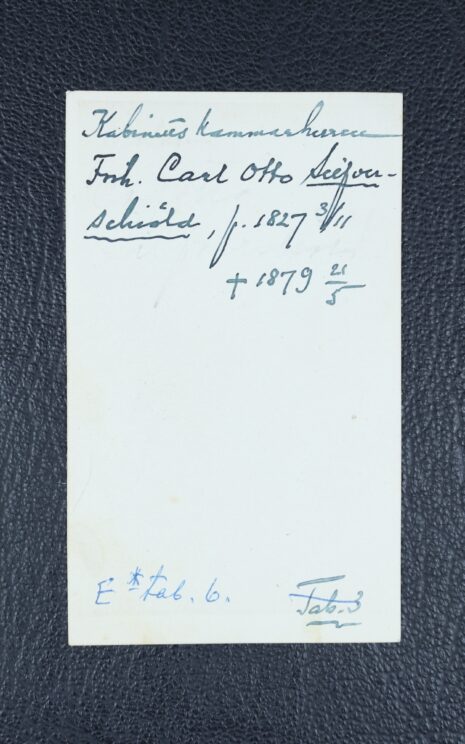 Kabinetts kammarherren
Frih. Carl Otto Silfver-
schiöld, f. 1827 3/11
+ 1879 21/5
E * tab. 6.
Tab. 3